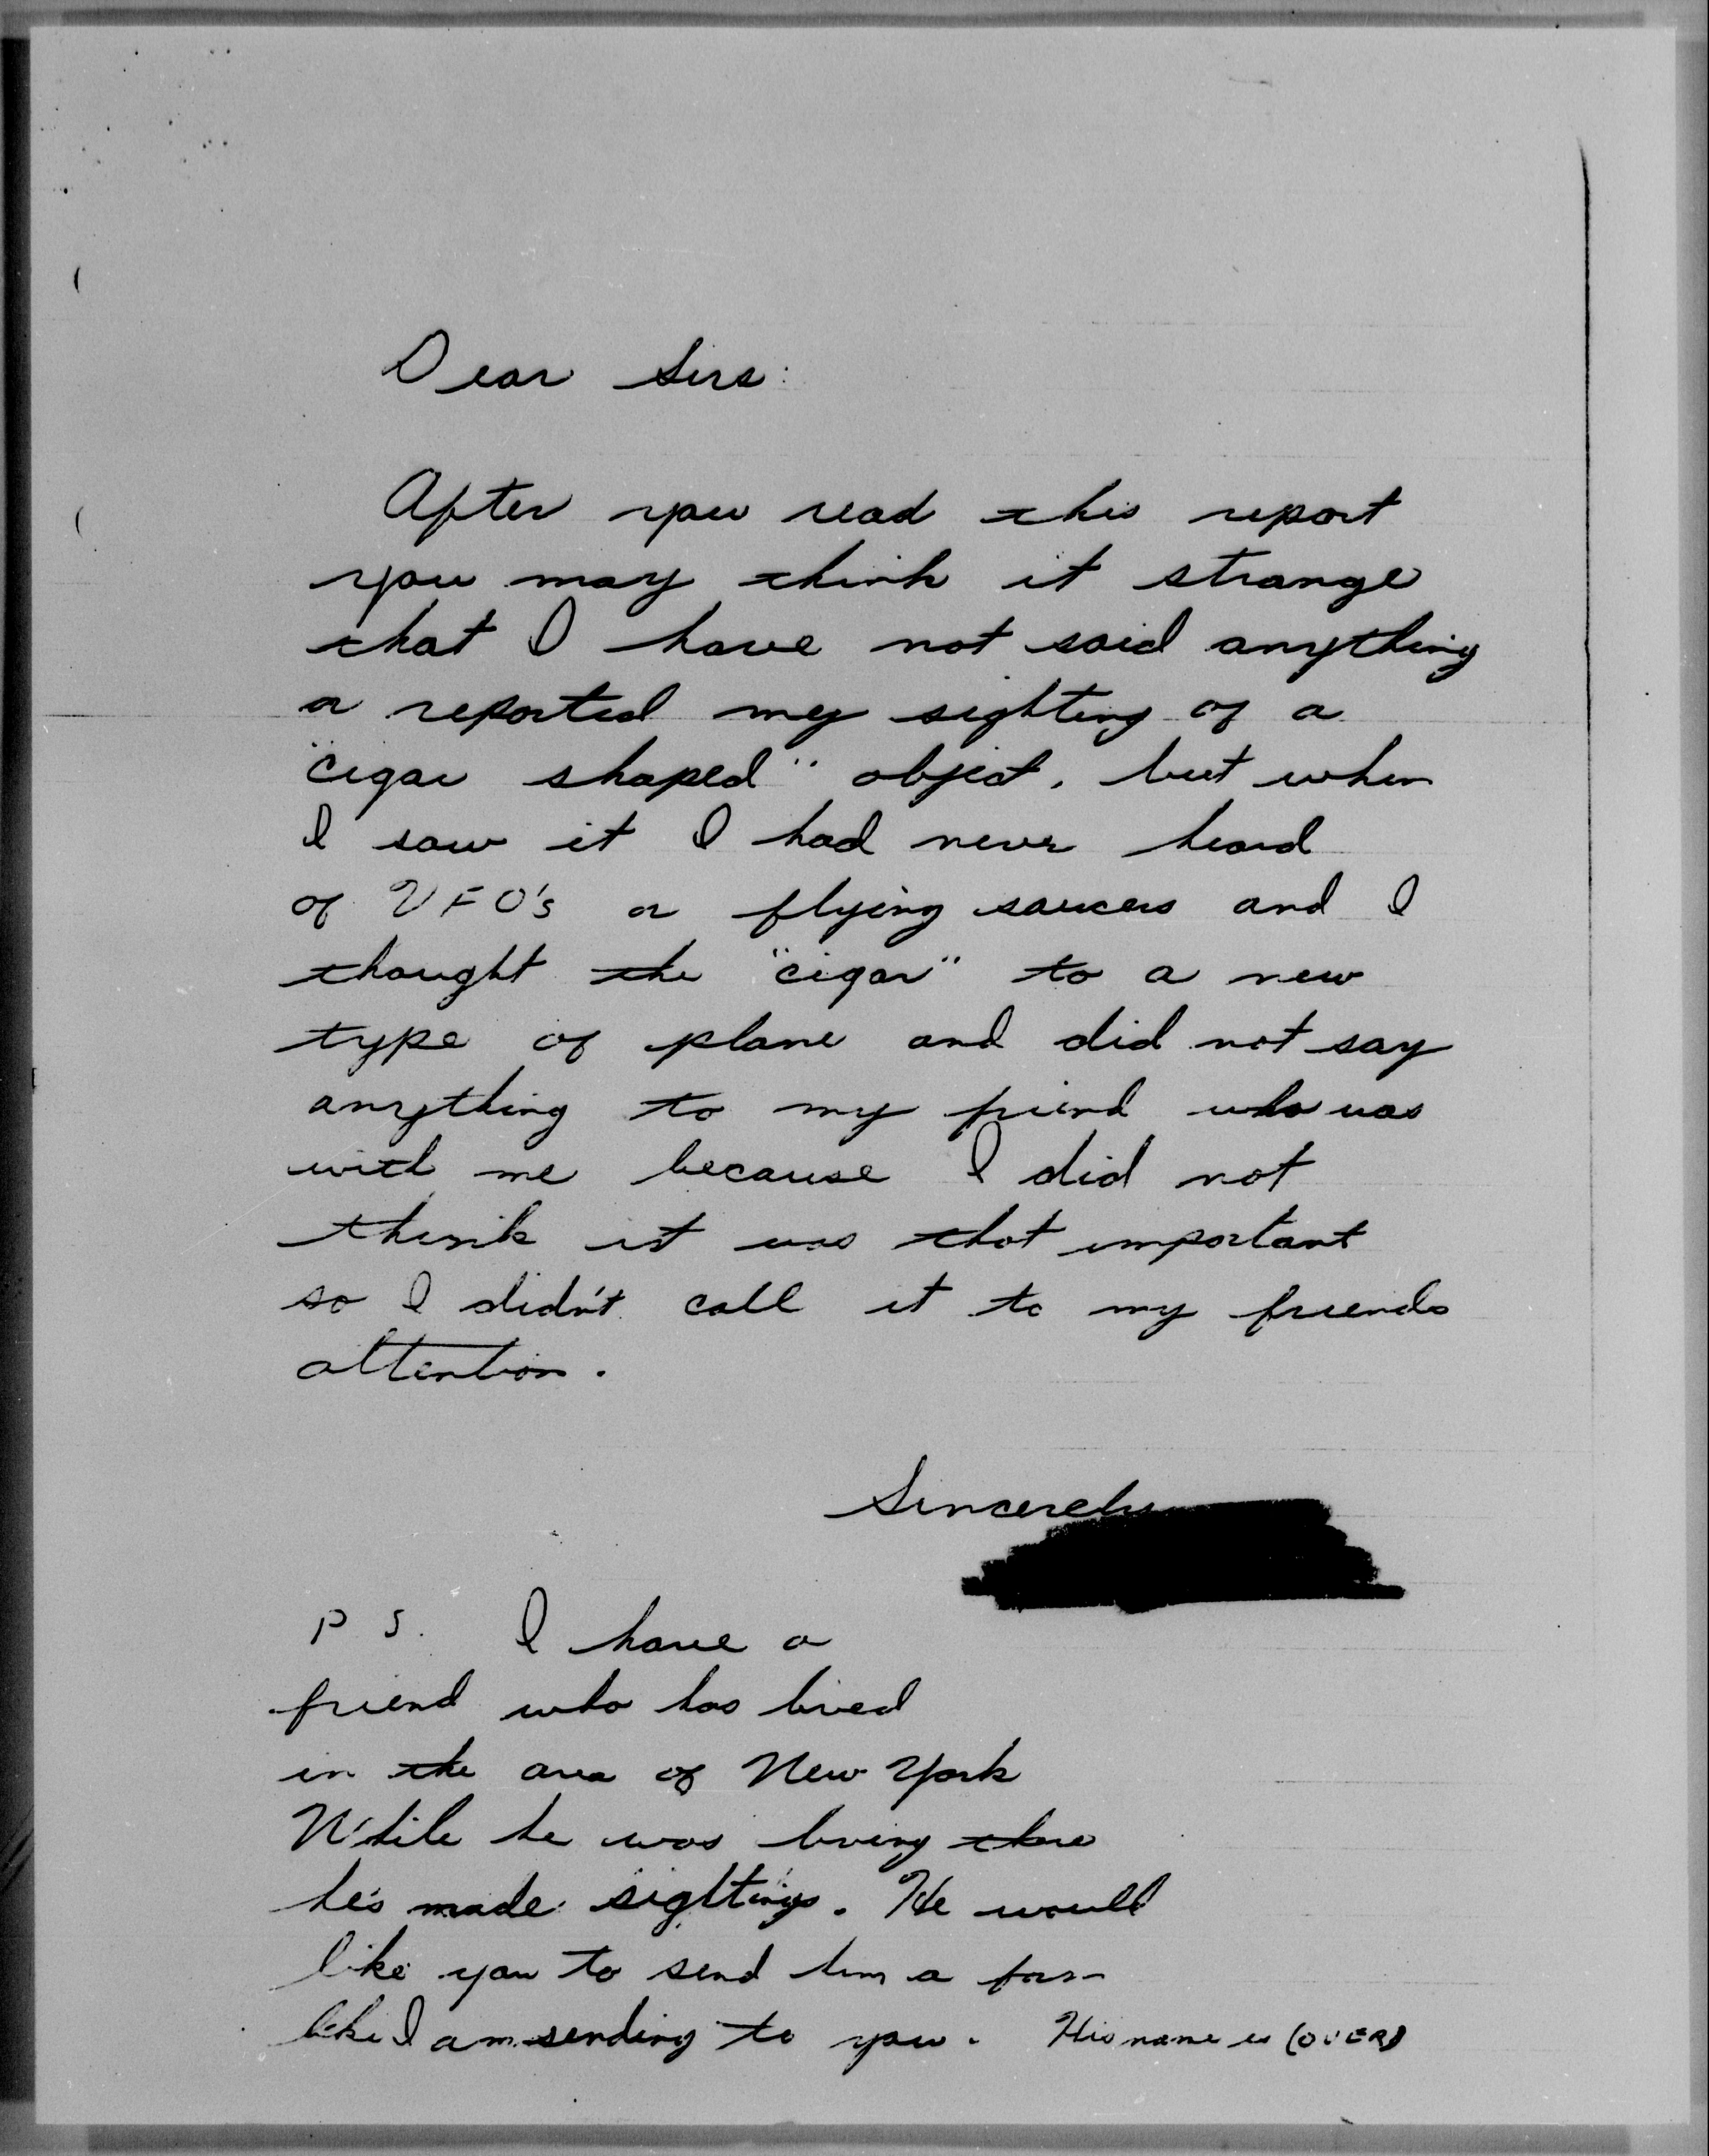 Dear Sirs:
After you read this report
you may think it strange
that I have not said anything
or reported my sighting of a
"cigar shaped" object, but when
I saw it I had never heard
of UFO's or flying saucers and I
thought the "cigar" to a new
type of plane and did not say
anything to my friend who was
with me because I did not
think it was that important
so I didn't call it to my friends
attention.
Sincerely
P S. I have a
friend who has lived
in the area of New York
While he was living there
he's made sightings. He would
like you to send him a form
like I am sending to you. His name is (OVER)